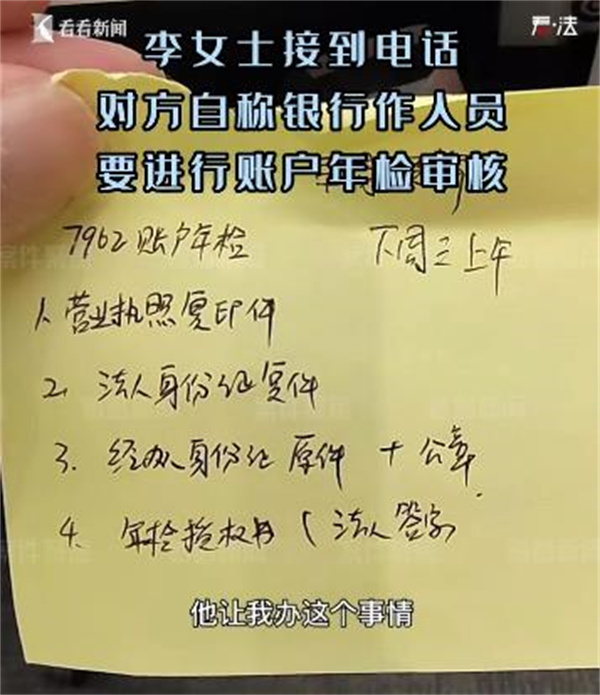 看看新闻
看·法
李女士接到电话
对方自称银行作人员
要进行账户年检审核
7962账户年检 下周三上午
1. 营业执照复印件
2. 法人身份证复件
3. 经办人身份证原件 + 公章.
4. 年检授权书 ( 法人签字)
他让我办这个事情